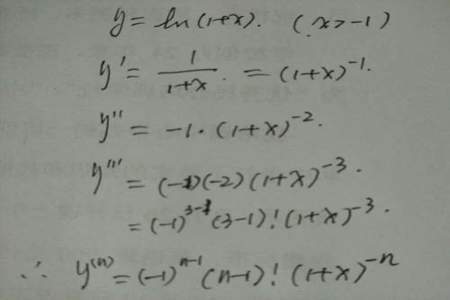 y = ln(1+x). (x>-1)
y' = 1/(1+x). = (1+x)^{-1}.
y'' = -1·(1+x)^{-2}.
y''' = (-1)(-2)(1+x)^{-3}.
= (-1)^{3-1}(3-1)!(1+x)^{-3}.
∴ y^{(n)} = (-1)^{n-1}(n-1)!(1+x)^{-n}